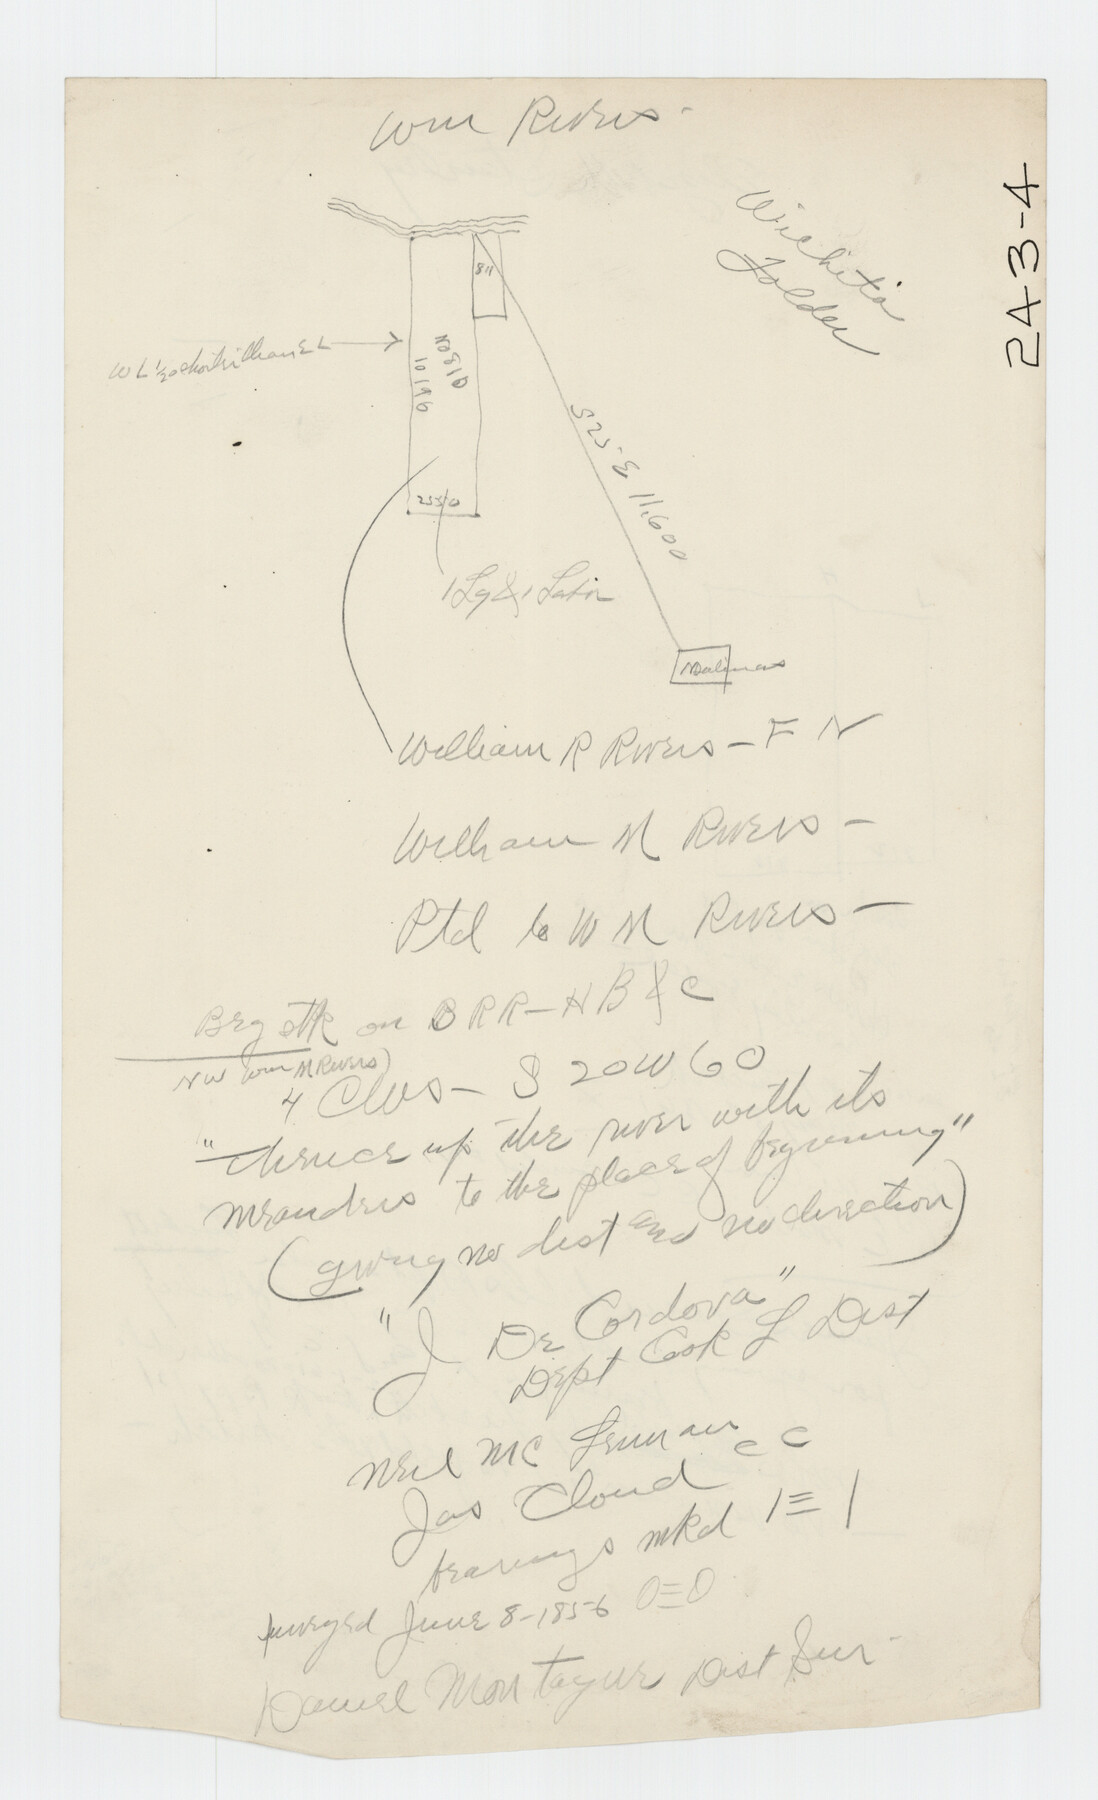 Wm Rivers -
Wichita
Folder
243-4
811
10196
2550
S25-E 11,600
1 Lg & 1 Labor
William R Rivers - F N
William M Rivers -
Ptd to W M Rivers -
Beg stk on BRR - HB & C
NW Wm M Rivers)
4 CWS - S 20 W 60
"thence up the river with its
meanders to the place of beginning"
(giving no dist and no direction)
"J De Cordova"
Dept Cook L Dist
Neil Mc Lennan
Jas Cloud CC
bearings mkd
surveyed June 8-1856
Daniel Montague Dist Sur -